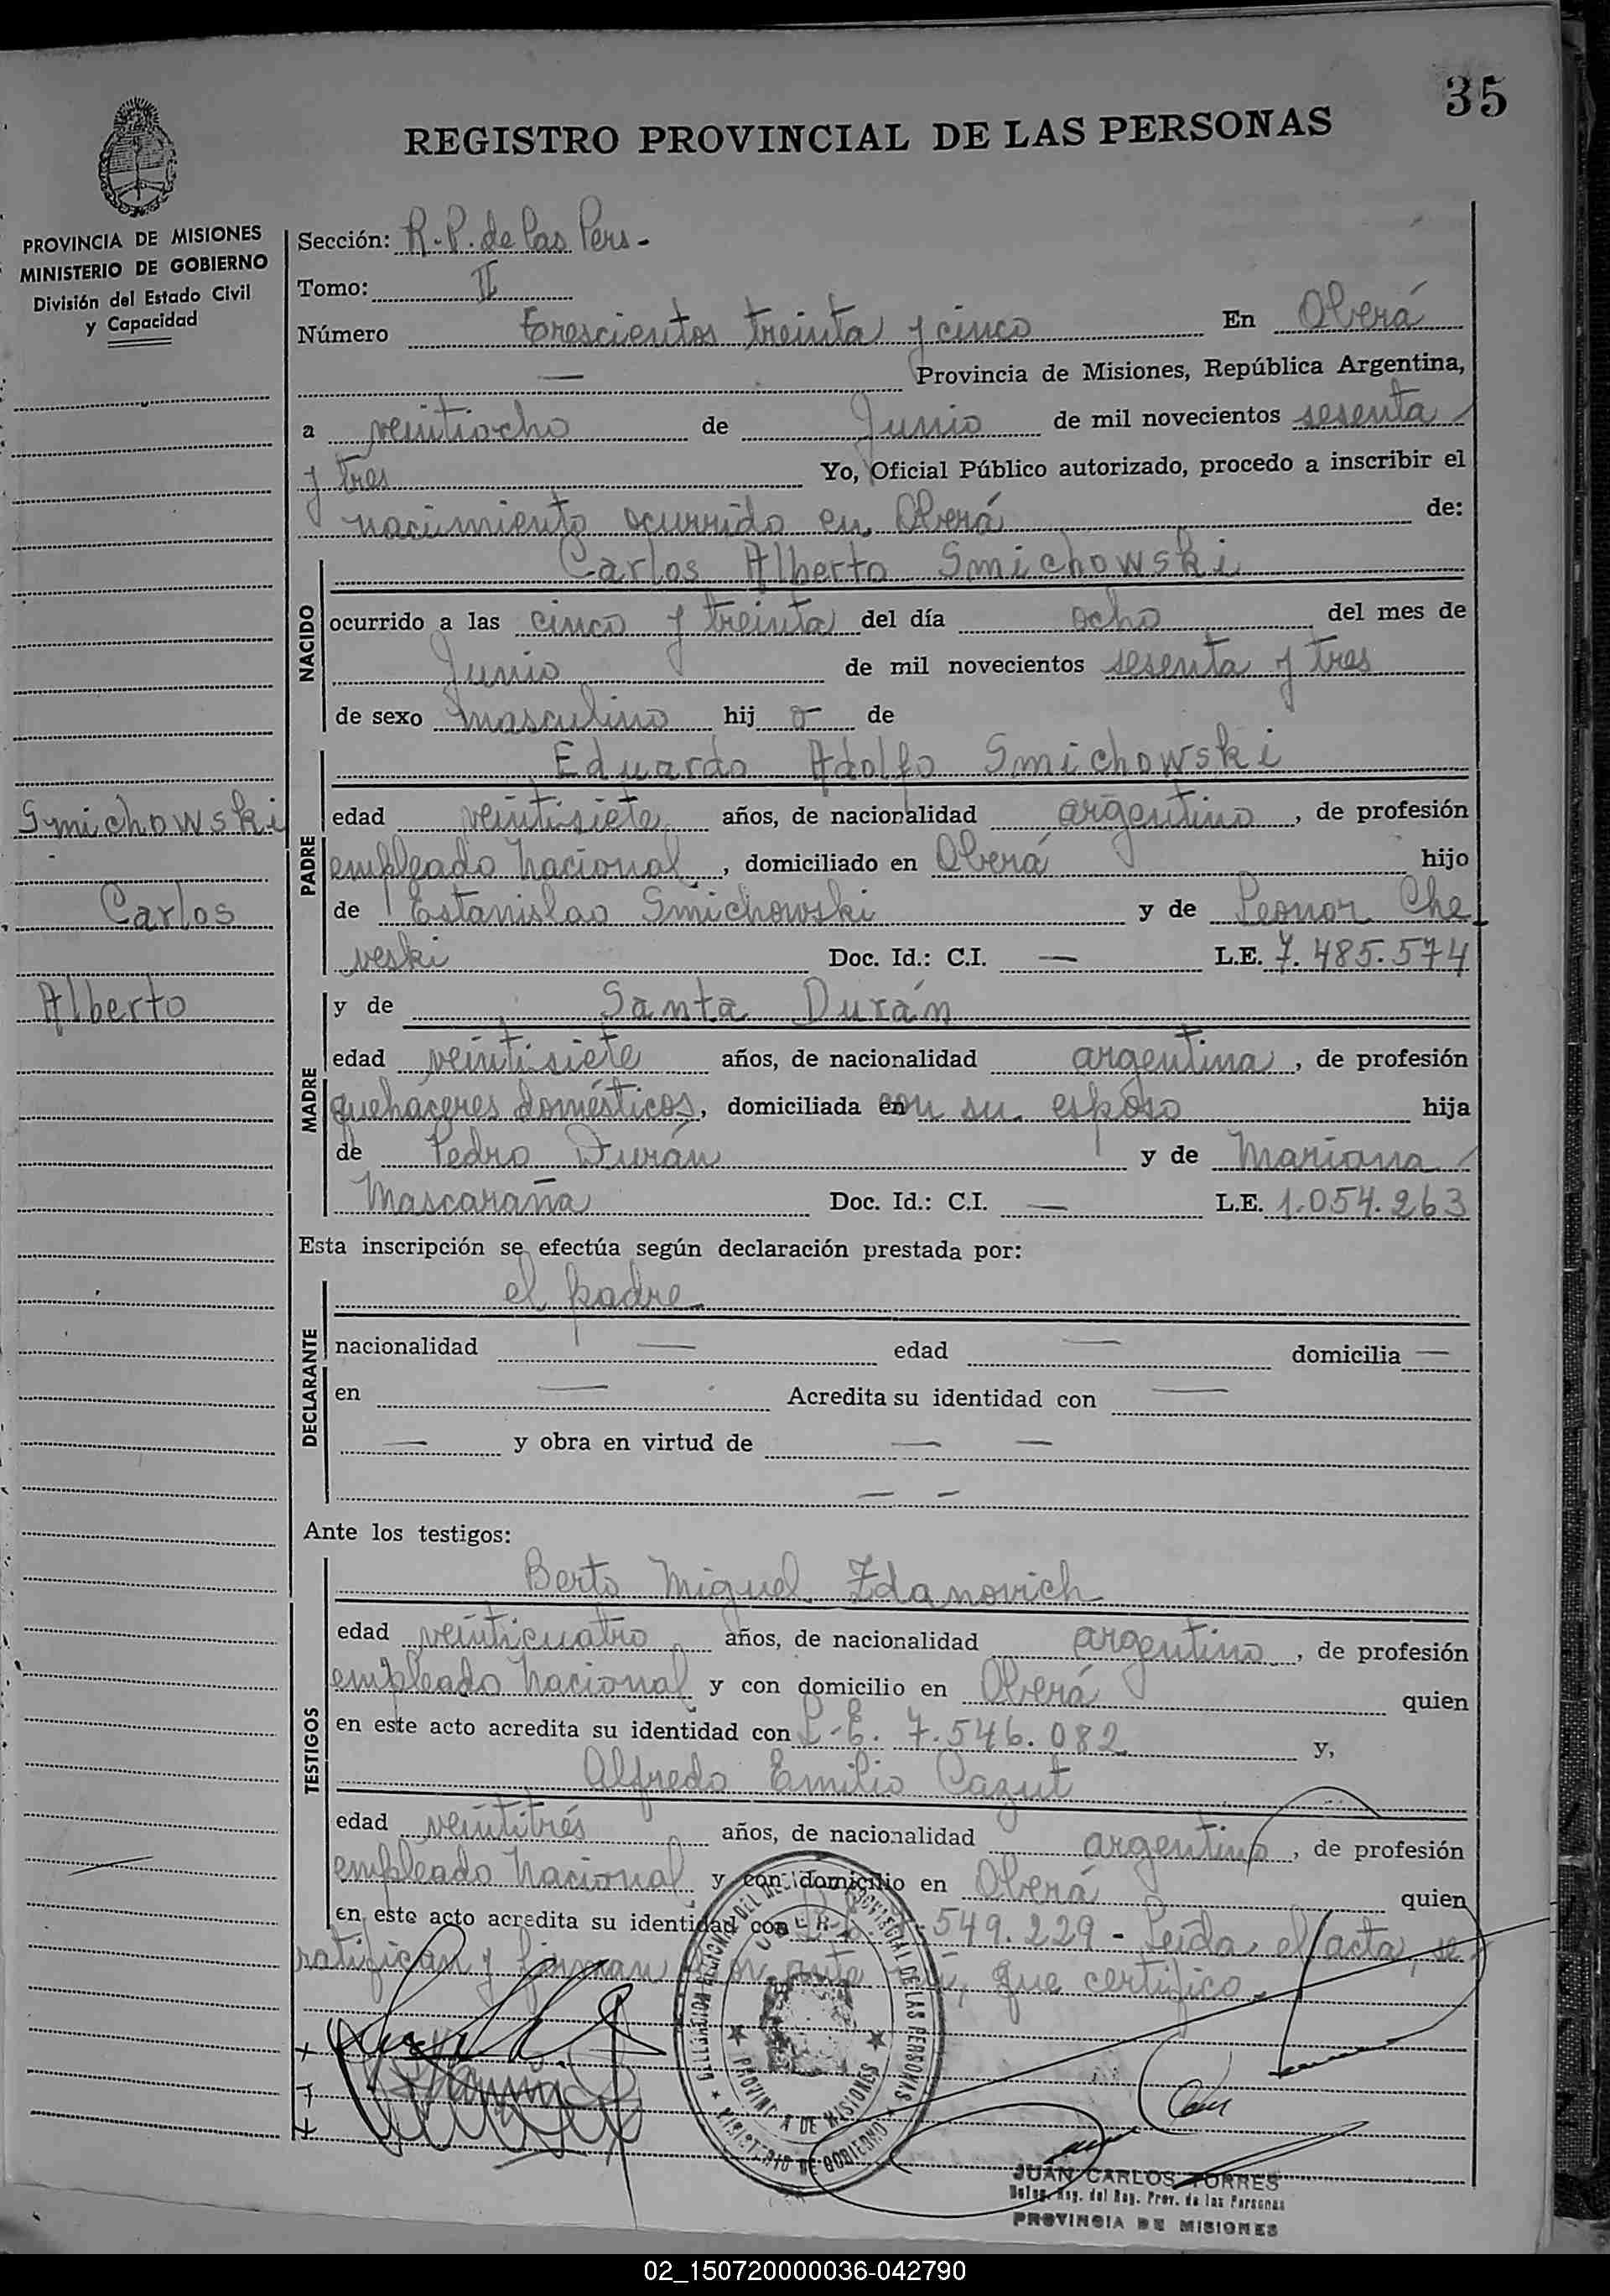 35
REGISTRO PROVINCIAL DE LAS PERSONAS
PROVINCIA DE MISIONES
MINISTERIO DE GOBIERNO
División del Estado Civil
y Capacidad
Sección: R.P. de las Pers.-
Tomo: II
Número trescientos treinta y cinco En Oberá
— Provincia de Misiones, República Argentina,
a veintiocho de Junio de mil novecientos sesenta
y tres Yo, Oficial Público autorizado, procedo a inscribir el
nacimiento ocurrido en Oberá de:
NACIDO
Carlos Alberto Smichowski
ocurrido a las cinco y treinta del día ocho del mes de
Junio de mil novecientos sesenta y tres
de sexo masculino hij o de
PADRE
Eduardo Adolfo Smichowski
Smichowski
Carlos
Alberto
edad veintisiete años, de nacionalidad argentino, de profesión
empleado Nacional, domiciliado en Oberá hijo
de Estanislao Smichowski y de Leonor Che
veski Doc. Id.: C.I. — L.E. 7.485.574
MADRE
y de Santa Durán
edad veintisiete años, de nacionalidad argentina, de profesión
quehaceres domésticos, domiciliada en con su esposo hija
de Pedro Durán y de Mariana
Mascaraña Doc. Id.: C.I. — L.E. 1.054.263
Esta inscripción se efectúa según declaración prestada por:
DECLARANTE
el padre
nacionalidad — edad — domicilia —
en — Acredita su identidad con —
— y obra en virtud de — —
— —
Ante los testigos:
TESTIGOS
Berto Miguel Zdanovich
edad veinticuatro años, de nacionalidad argentino, de profesión
empleado Nacional y con domicilio en Oberá quien
en este acto acredita su identidad con L.E. 7.546.082 y,
Alfredo Emilio Cazut
edad veintitrés años, de nacionalidad argentino, de profesión
empleado Nacional y con domicilio en Oberá quien
en este acto acredita su identidad con 549.229 - Leída el acta, se
ratifican y firman por ante mí, que certifico.
PROVINCIAL DE LAS PERSONAS
PROVINCIA DE MISIONES
MINISTERIO DE GOBIERNO
JUAN CARLOS TORRES
Deleg. Reg. del Reg. Prov. de las Personas
PROVINCIA DE MISIONES
02_150720000036-042790